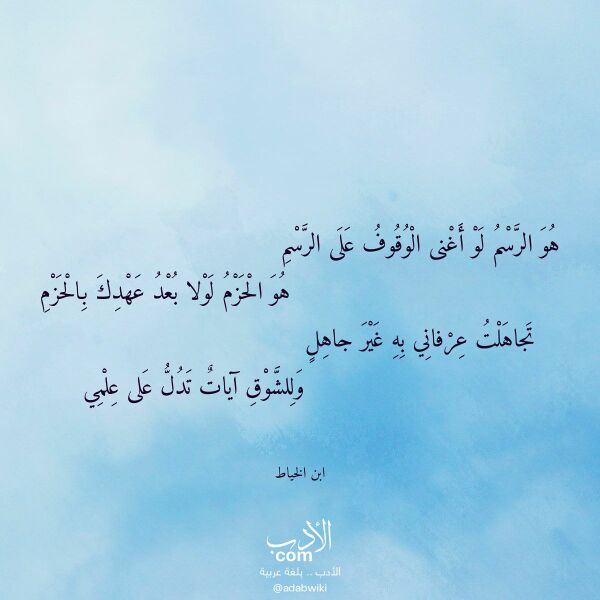 هُوَ الرَّسْمُ لَوْ أَغْنى الْوُقُوفُ عَلَى الرَّسْمِ
هُوَ الْحَزْمُ لَوْلا بُعْدُ عَهْدِكَ بِالْحَزْمِ
تَجاهَلْتُ عِرْفانِي بِهِ غَيْرَ جاهِلٍ
وَلِلشَّوْقِ آياتٌ تَدُلُّ عَلى عِلْمِي
ابن الخياط
الأدب
com
الأدب .. بلغة عربية
@adabwiki